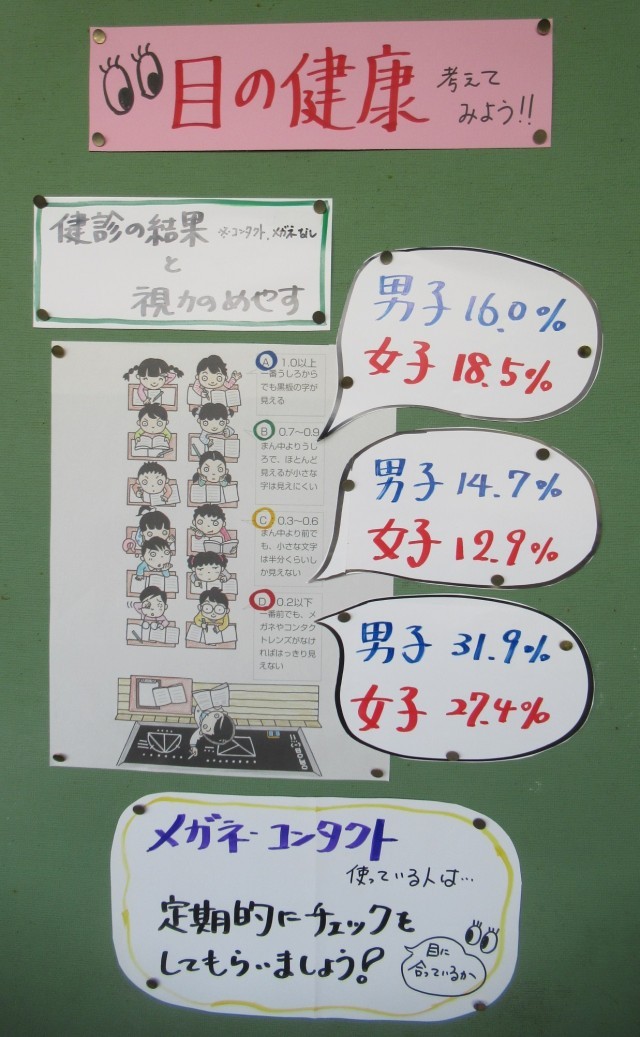 目の健康 考えて
みよう!!
健診の結果 ※コンタクト、メガネなし
と
視力のめやす
男子 16.0%
女子 18.5%
A 1.0以上
一番うしろから
でも黒板の字が
見える
B 0.7〜0.9
まん中よりうし
ろで、ほとんど
見えるが小さな
字は見えにくい
男子 14.7%
女子 12.9%
C 0.3〜0.6
まん中より前で
も、小さな文字
は半分くらいし
か見えない
男子 31.9%
女子 27.4%
D 0.2以下
一番前でも、メ
ガネやコンタク
トレンズがなけ
ればはっきり見
えない
メガネ・コンタクト
使っている人は…
定期的にチェックを
してもらいましょう!
目に
合っているか